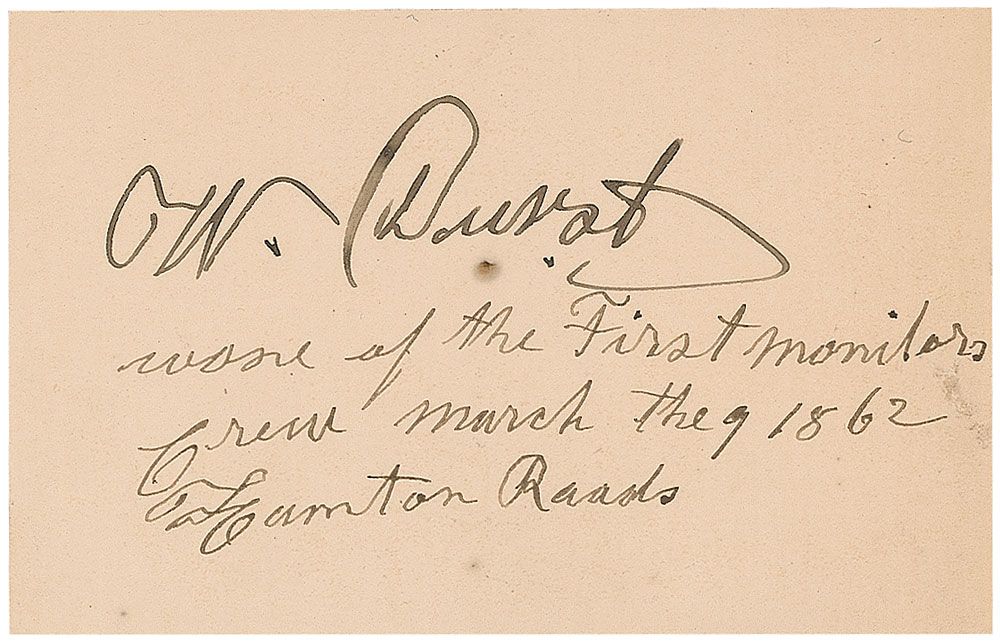 W. Durst
wone of the First monitors
Crew march the 9 1862
Hamton Roads